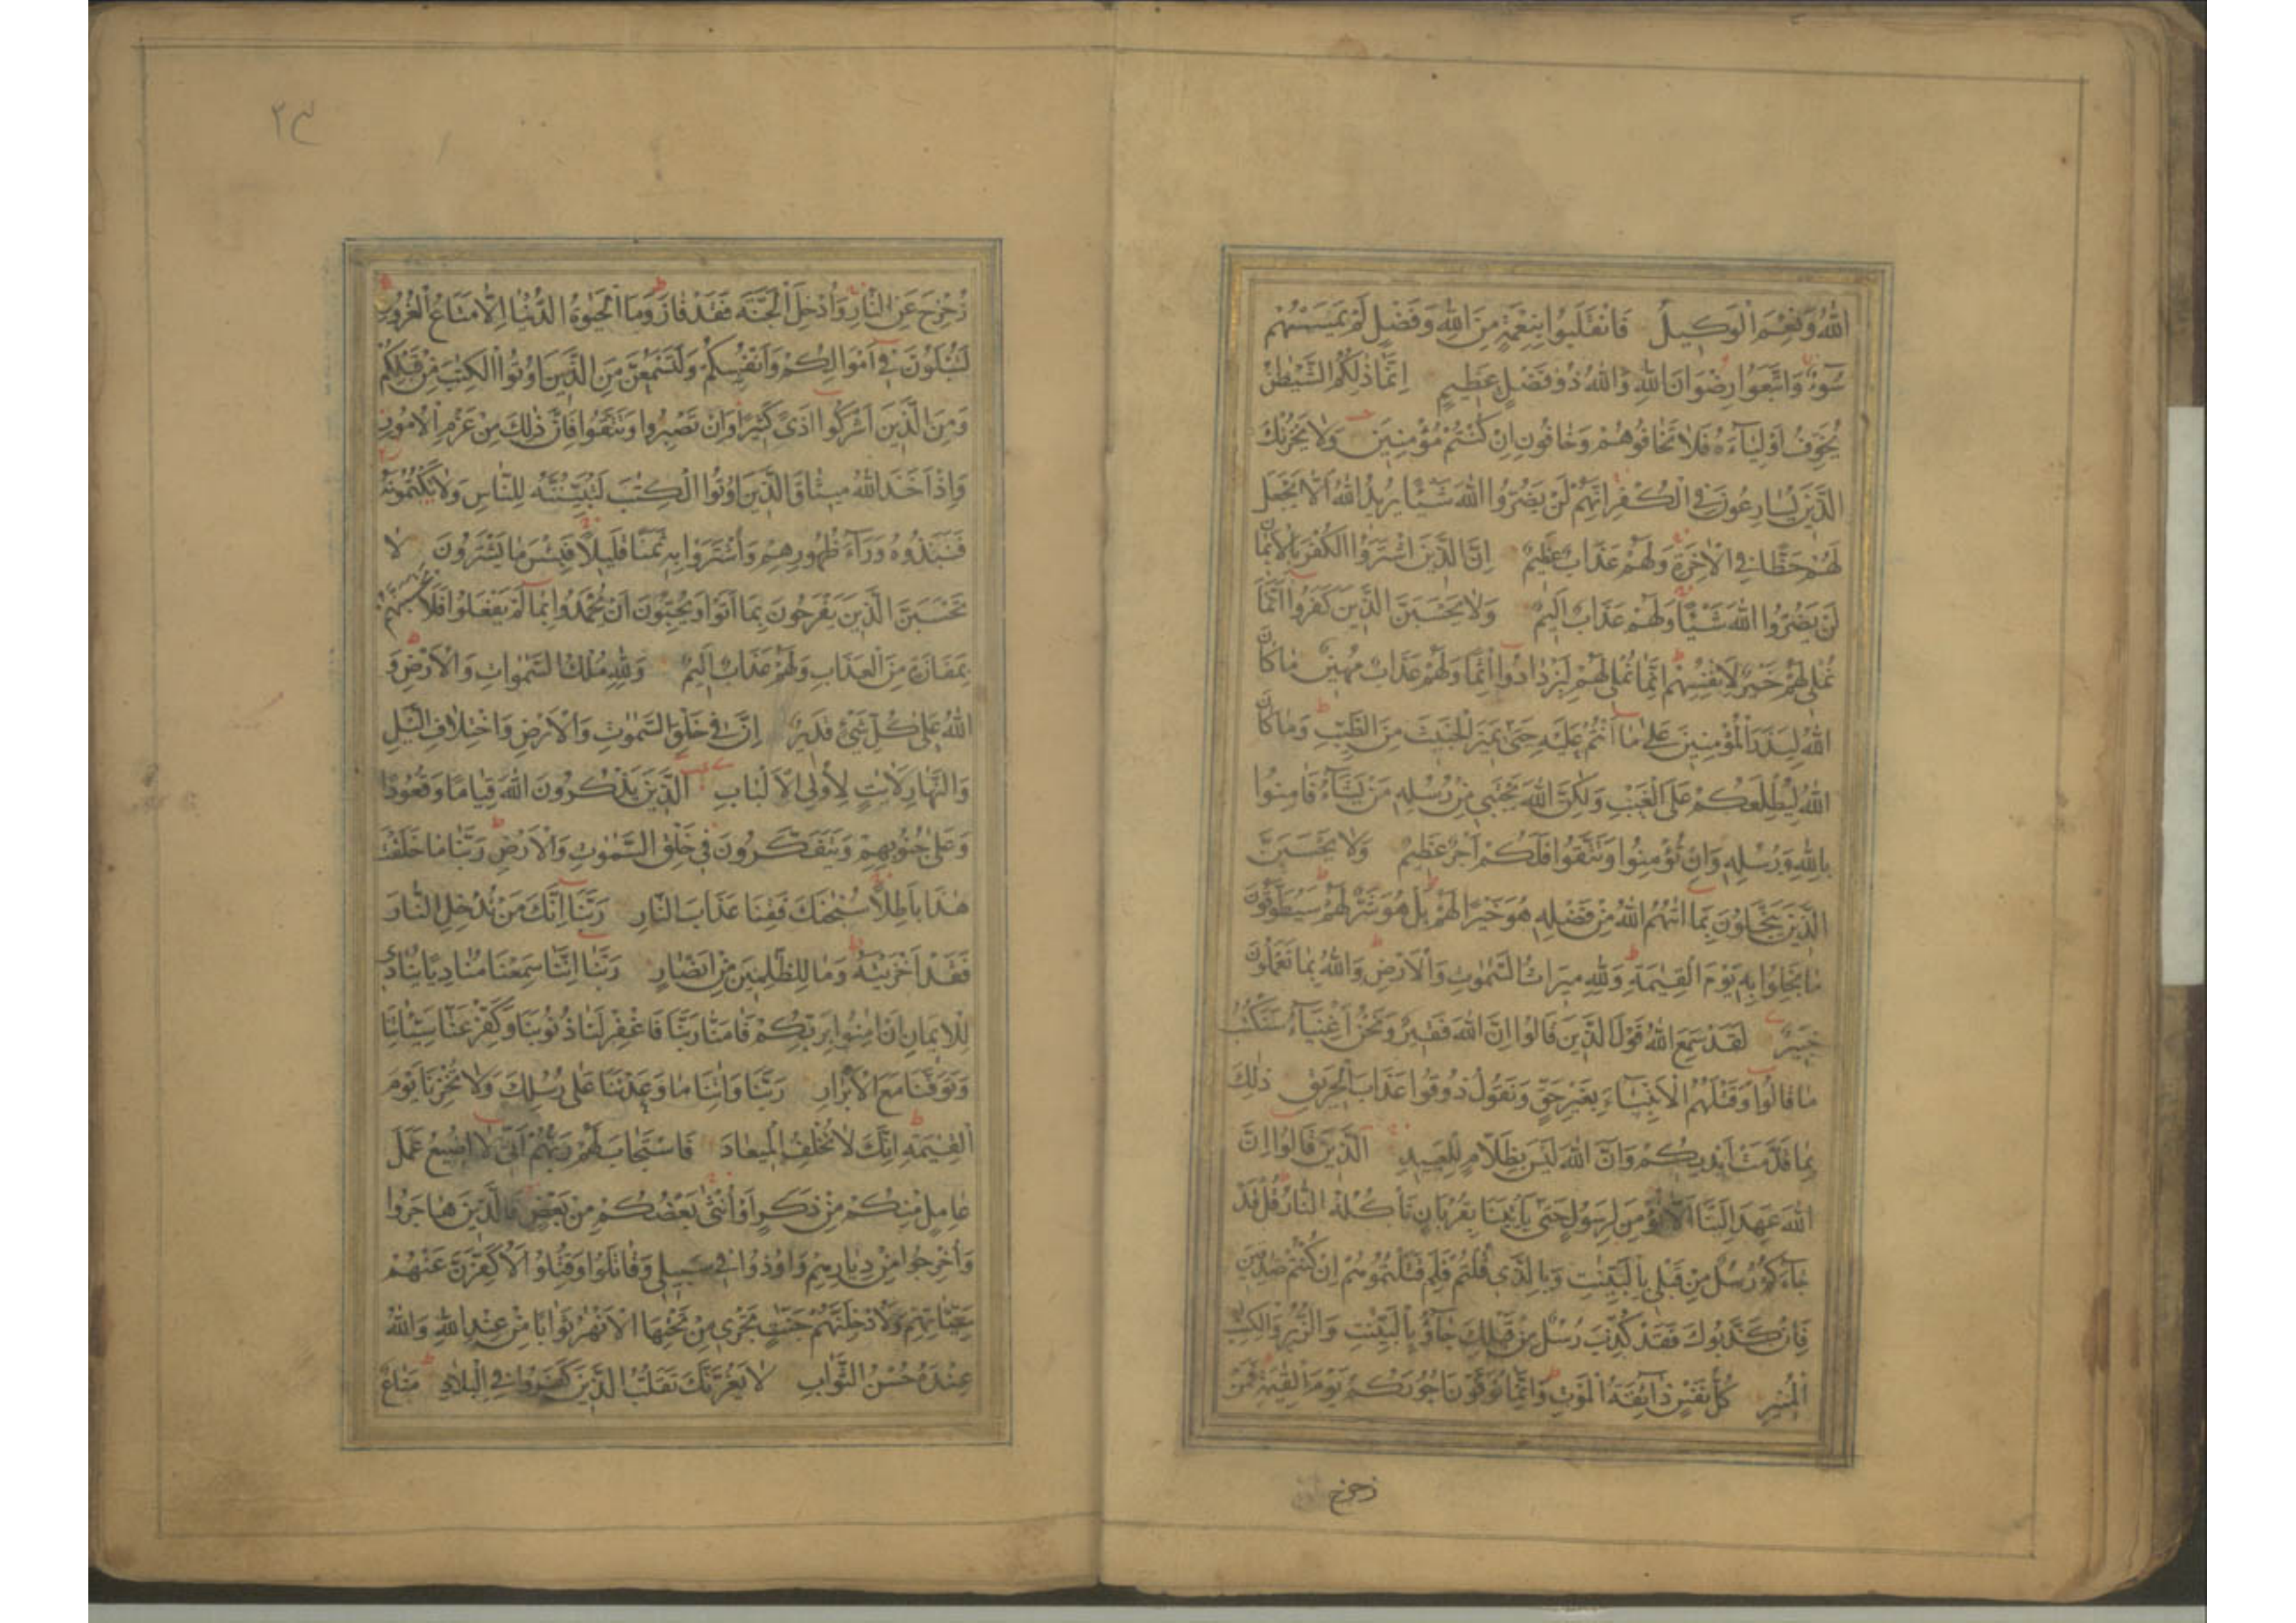 اللهُ وَنِعْمَ الْوَكِيلُ فَانْقَلَبُوا بِنِعْمَةٍ مِنَ اللهِ وَفَضْلٍ لَمْ يَمْسَسْهُمْ
سُوءٌ وَاتَّبَعُوا رِضْوَانَ اللهِ وَاللهُ ذُو فَضْلٍ عَظِيمٍ اِنَّمَا ذٰلِكُمُ الشَّيْطٰنُ
يُخَوِّفُ اَوْلِيَآءَهُ فَلَا تَخَافُوهُمْ وَخَافُونِ اِنْ كُنْتُمْ مُؤْمِنِينَ وَلَا يَحْزُنْكَ
الَّذِينَ يُسَارِعُونَ فِي الْكُفْرِ اِنَّهُمْ لَنْ يَضُرُّوا اللهَ شَيْئًا يُرِيدُ اللهُ اَلَّا يَجْعَلَ
لَهُمْ حَظًّا فِي الْاٰخِرَةِ وَلَهُمْ عَذَابٌ عَظِيمٌ اِنَّ الَّذِينَ اشْتَرَوُا الْكُفْرَ بِالْاِيمَانِ
لَنْ يَضُرُّوا اللهَ شَيْئًا وَلَهُمْ عَذَابٌ اَلِيمٌ وَلَا يَحْسَبَنَّ الَّذِينَ كَفَرُوا اَنَّمَا
نُمْلِي لَهُمْ خَيْرٌ لِاَنْفُسِهِمْ اِنَّمَا نُمْلِي لَهُمْ لِيَزْدَادُوا اِثْمًا وَلَهُمْ عَذَابٌ مُهِينٌ مَا كَانَ
اللهُ لِيَذَرَ الْمُؤْمِنِينَ عَلٰى مَا اَنْتُمْ عَلَيْهِ حَتّٰى يَمِيزَ الْخَبِيثَ مِنَ الطَّيِّبِ وَمَا كَانَ
اللهُ لِيُطْلِعَكُمْ عَلَى الْغَيْبِ وَلٰكِنَّ اللهَ يَجْتَبِي مِنْ رُسُلِهِ مَنْ يَشَآءُ فَاٰمِنُوا
بِاللهِ وَرُسُلِهِ وَاِنْ تُؤْمِنُوا وَتَتَّقُوا فَلَكُمْ اَجْرٌ عَظِيمٌ وَلَا يَحْسَبَنَّ
الَّذِينَ يَبْخَلُونَ بِمَا اٰتٰهُمُ اللهُ مِنْ فَضْلِهِ هُوَ خَيْرًا لَهُمْ بَلْ هُوَ شَرٌّ لَهُمْ سَيُطَوَّقُونَ
مَا بَخِلُوا بِهِ يَوْمَ الْقِيٰمَةِ وَلِلّٰهِ مِيرَاثُ السَّمٰوٰتِ وَالْاَرْضِ وَاللهُ بِمَا تَعْمَلُونَ
خَبِيرٌ لَقَدْ سَمِعَ اللهُ قَوْلَ الَّذِينَ قَالُوا اِنَّ اللهَ فَقِيرٌ وَنَحْنُ اَغْنِيَآءُ سَنَكْتُبُ
مَا قَالُوا وَقَتْلَهُمُ الْاَنْبِيَآءَ بِغَيْرِ حَقٍّ وَنَقُولُ ذُوقُوا عَذَابَ الْحَرِيقِ ذٰلِكَ
بِمَا قَدَّمَتْ اَيْدِيكُمْ وَاَنَّ اللهَ لَيْسَ بِظَلَّامٍ لِلْعَبِيدِ اَلَّذِينَ قَالُوا اِنَّ
اللهَ عَهِدَ اِلَيْنَا اَلَّا نُؤْمِنَ لِرَسُولٍ حَتّٰى يَأْتِيَنَا بِقُرْبَانٍ تَأْكُلُهُ النَّارُ قُلْ قَدْ
جَآءَكُمْ رُسُلٌ مِنْ قَبْلِي بِالْبَيِّنٰتِ وَبِالَّذِي قُلْتُمْ فَلِمَ قَتَلْتُمُوهُمْ اِنْ كُنْتُمْ صٰدِقِينَ
فَاِنْ كَذَّبُوكَ فَقَدْ كُذِّبَ رُسُلٌ مِنْ قَبْلِكَ جَآؤُ بِالْبَيِّنٰتِ وَالزُّبُرِ وَالْكِتٰبِ
الْمُنِيرِ كُلُّ نَفْسٍ ذَآئِقَةُ الْمَوْتِ وَاِنَّمَا تُوَفَّوْنَ اُجُورَكُمْ يَوْمَ الْقِيٰمَةِ فَمَنْ
زحزح
٢٣
زُحْزِحَ عَنِ النَّارِ وَاُدْخِلَ الْجَنَّةَ فَقَدْ فَازَ وَمَا الْحَيٰوةُ الدُّنْيَا اِلَّا مَتَاعُ الْغُرُورِ
لَتُبْلَوُنَّ فِي اَمْوَالِكُمْ وَاَنْفُسِكُمْ وَلَتَسْمَعُنَّ مِنَ الَّذِينَ اُوتُوا الْكِتٰبَ مِنْ قَبْلِكُمْ
وَمِنَ الَّذِينَ اَشْرَكُوا اَذًى كَثِيرًا وَاِنْ تَصْبِرُوا وَتَتَّقُوا فَاِنَّ ذٰلِكَ مِنْ عَزْمِ الْاُمُورِ
وَاِذْ اَخَذَ اللهُ مِيثَاقَ الَّذِينَ اُوتُوا الْكِتٰبَ لَتُبَيِّنُنَّهُ لِلنَّاسِ وَلَا تَكْتُمُونَهُ
فَنَبَذُوهُ وَرَآءَ ظُهُورِهِمْ وَاشْتَرَوْا بِهِ ثَمَنًا قَلِيلًا فَبِئْسَ مَا يَشْتَرُونَ لَا
تَحْسَبَنَّ الَّذِينَ يَفْرَحُونَ بِمَا اَتَوْا وَيُحِبُّونَ اَنْ يُحْمَدُوا بِمَا لَمْ يَفْعَلُوا فَلَا تَحْسَبَنَّهُمْ
بِمَفَازَةٍ مِنَ الْعَذَابِ وَلَهُمْ عَذَابٌ اَلِيمٌ وَلِلّٰهِ مُلْكُ السَّمٰوَاتِ وَالْاَرْضِ وَ
اللهُ عَلٰى كُلِّ شَيْءٍ قَدِيرٌ اِنَّ فِي خَلْقِ السَّمٰوٰتِ وَالْاَرْضِ وَاخْتِلَافِ الَّيْلِ
وَالنَّهَارِ لَاٰيَاتٍ لِاُولِي الْاَلْبَابِ اَلَّذِينَ يَذْكُرُونَ اللهَ قِيَامًا وَقُعُودًا
وَعَلٰى جُنُوبِهِمْ وَيَتَفَكَّرُونَ فِي خَلْقِ السَّمٰوٰتِ وَالْاَرْضِ رَبَّنَا مَا خَلَقْتَ
هٰذَا بَاطِلًا سُبْحٰنَكَ فَقِنَا عَذَابَ النَّارِ رَبَّنَا اِنَّكَ مَنْ تُدْخِلِ النَّارَ
فَقَدْ اَخْزَيْتَهُ وَمَا لِلظّٰلِمِينَ مِنْ اَنْصَارٍ رَبَّنَا اِنَّنَا سَمِعْنَا مُنَادِيًا يُنَادِي
لِلْاِيمَانِ اَنْ اٰمِنُوا بِرَبِّكُمْ فَاٰمَنَّا رَبَّنَا فَاغْفِرْ لَنَا ذُنُوبَنَا وَكَفِّرْ عَنَّا سَيِّئَاتِنَا
وَتَوَفَّنَا مَعَ الْاَبْرَارِ رَبَّنَا وَاٰتِنَا مَا وَعَدْتَنَا عَلٰى رُسُلِكَ وَلَا تُخْزِنَا يَوْمَ
الْقِيٰمَةِ اِنَّكَ لَا تُخْلِفُ الْمِيعَادَ فَاسْتَجَابَ لَهُمْ رَبُّهُمْ اَنِّي لَا اُضِيعُ عَمَلَ
عَامِلٍ مِنْكُمْ مِنْ ذَكَرٍ اَوْ اُنْثٰى بَعْضُكُمْ مِنْ بَعْضٍ فَالَّذِينَ هَاجَرُوا
وَاُخْرِجُوا مِنْ دِيَارِهِمْ وَاُوذُوا فِي سَبِيلِي وَقَاتَلُوا وَقُتِلُوا لَاُكَفِّرَنَّ عَنْهُمْ
سَيِّئَاتِهِمْ وَلَاُدْخِلَنَّهُمْ جَنّٰتٍ تَجْرِي مِنْ تَحْتِهَا الْاَنْهٰرُ ثَوَابًا مِنْ عِنْدِ اللهِ وَاللهُ
عِنْدَهُ حُسْنُ الثَّوَابِ لَا يَغُرَّنَّكَ تَقَلُّبُ الَّذِينَ كَفَرُوا فِي الْبِلَادِ مَتَاعٌ